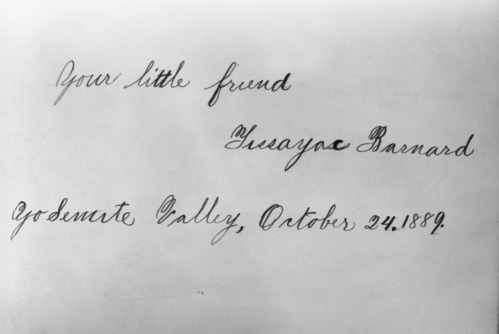 Your little friend
Tissayac Barnard
Yosemite Valley, October 24.1889.